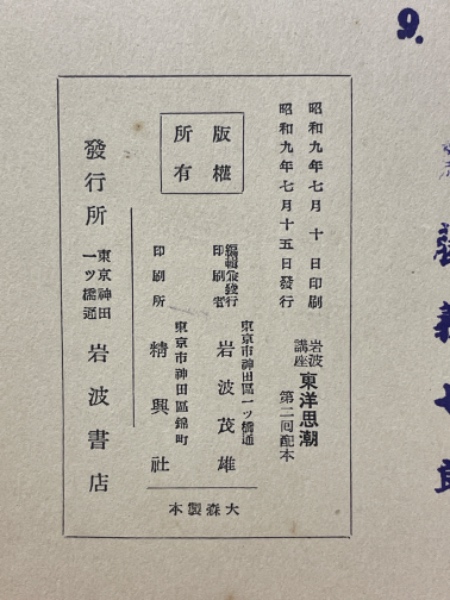 9.
昭和九年七月十日印刷
昭和九年七月十五日發行
岩波講座
東洋思潮
第二回配本
版權
所有
東京市神田區一ツ橋通
編輯兼發行印刷者
岩波茂雄
東京市神田區錦町
印刷所
精興社
大森製本
發行所
東京神田
一ツ橋通
岩波書店